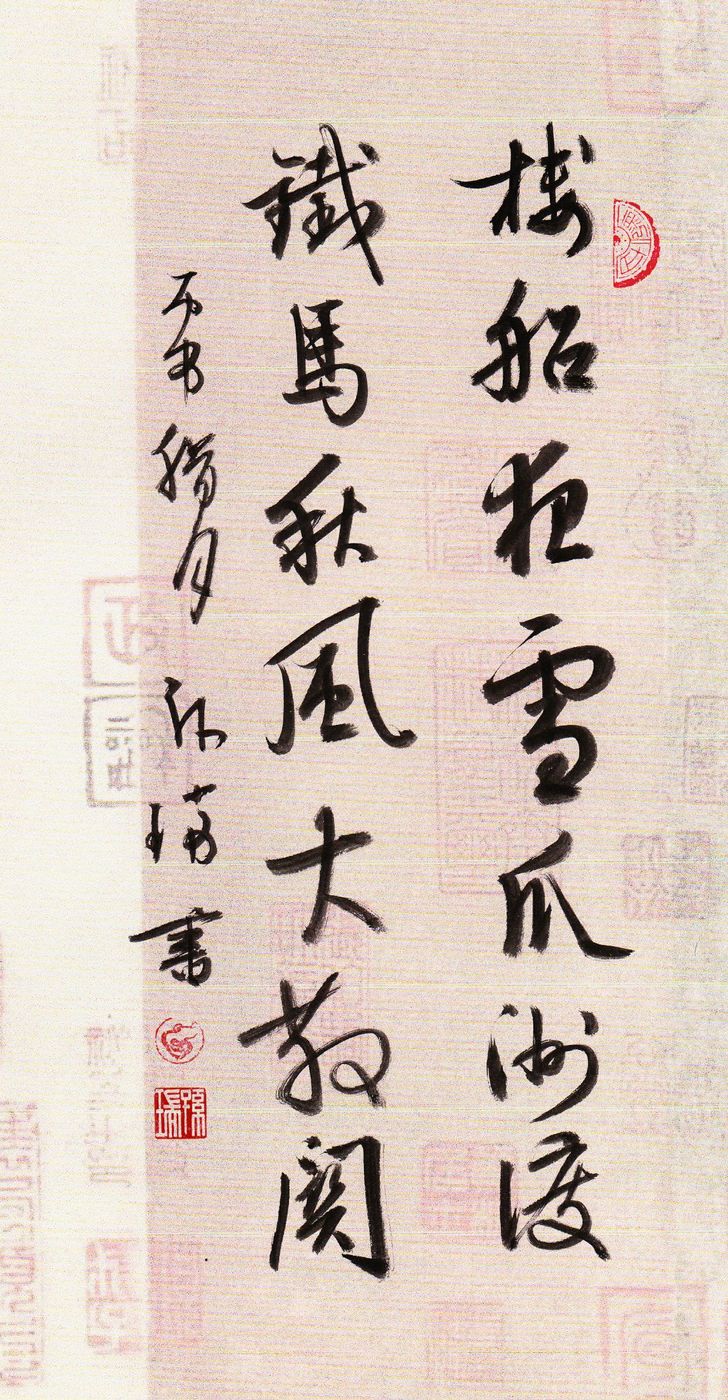 樓船夜雪瓜洲渡
鐵馬秋風大散關
丙申腊月 孫瑞書